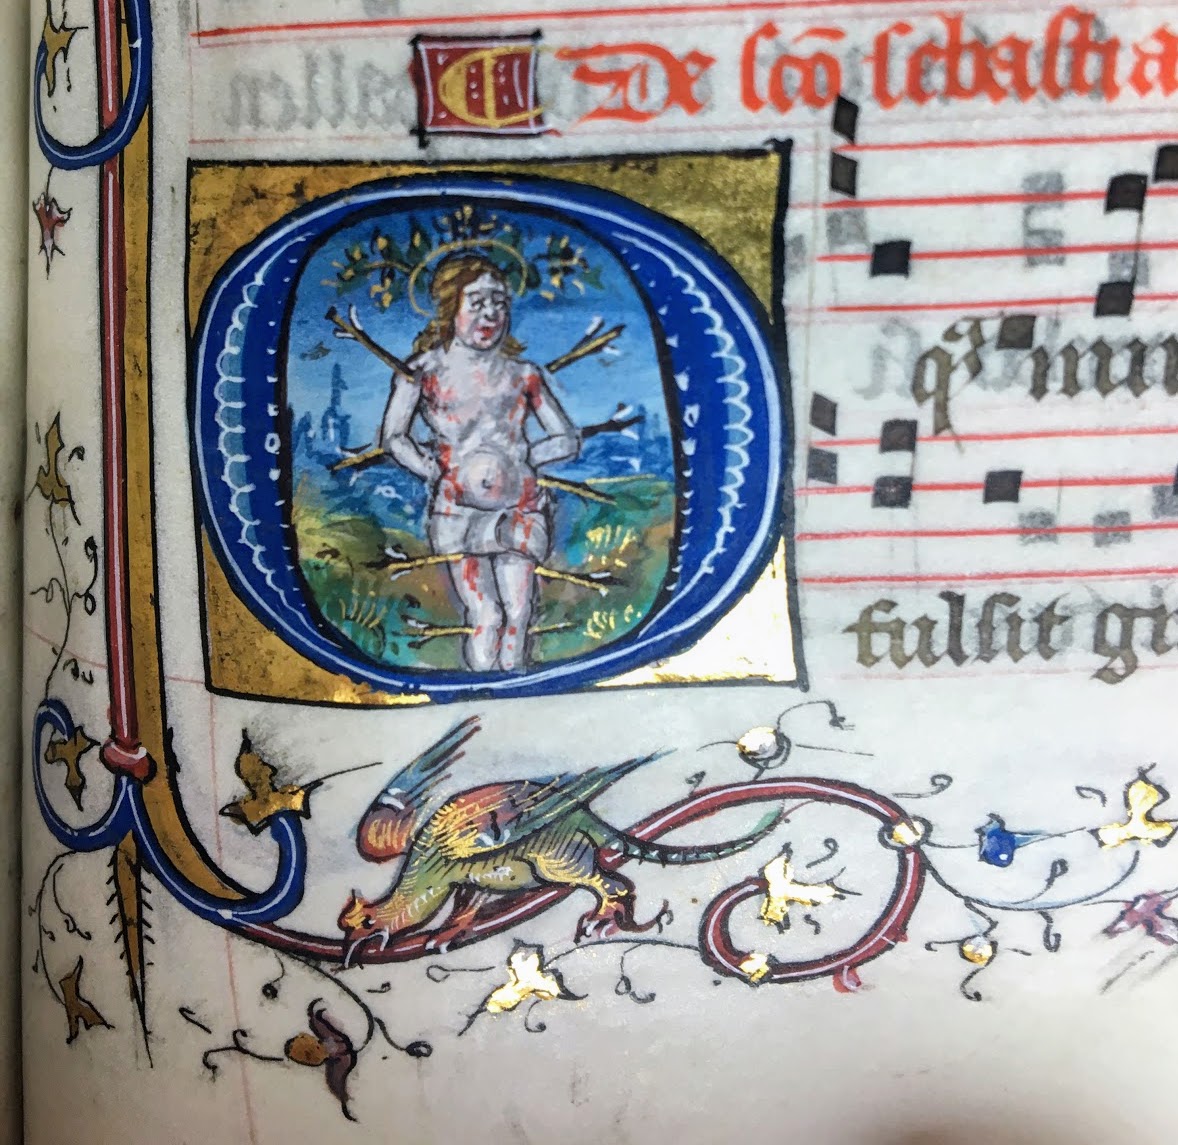 De sco᷃ sebastia
O
qͣ mir
fulsit gr